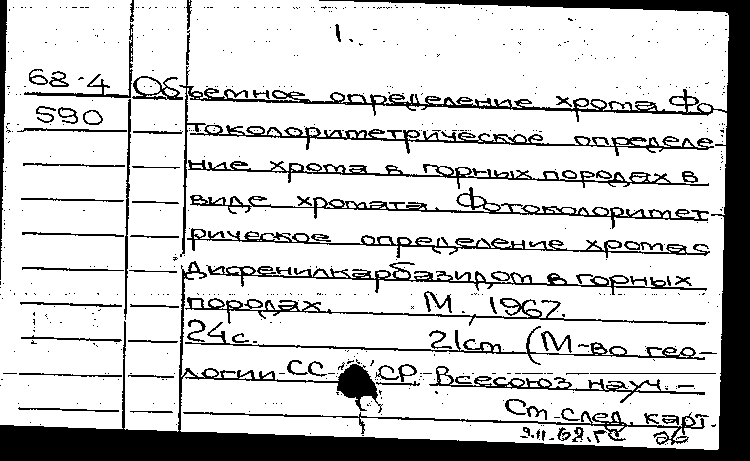 1.
68-4 Объемное определение хрома. Фо-
590 токолориметрическое определе-
ние хрома в горных породах в
виде хромата. Фотоколоримет-
рическое определение хрома с
дифенилкарбазидом в горных
породах. М., 1967.
24с. 21cm (М-во гео-
логии СССР. Всесоюз науч.-
См след. карт.
9.II.68.ГС